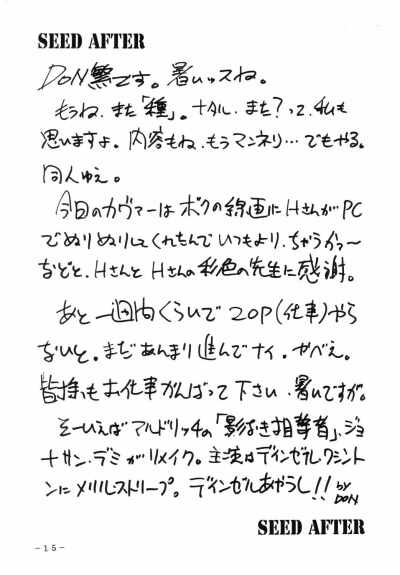 SEED AFTER
DON繁です。暑いッスね。
もうね、また「種」。ナタル、また?って、私も
思いますよ。内容もね、もうマンネリ…でもやる。
同人ゆえ。
今回のカヴァーはボクの線画にHさんがPC
でぬりぬりしてくれたんでいつもより、ちがうかっ〜
などと。HさんとHさんの彩色の先生に感謝。
あと一週間くらいで20P(仕事)やら
ないと。まだあんまり進んでナイ。やべえ。
皆様もお仕事がんばって下さい、暑いですが。
そーいえばアルドリッチの「影なき狙撃者」、ジョ
ナサン・デミがリメイク。主演はデインゼル・ワシント
ンにメリル・ストリープ。デインゼルあやうし!! by DON
SEED AFTER
-15-